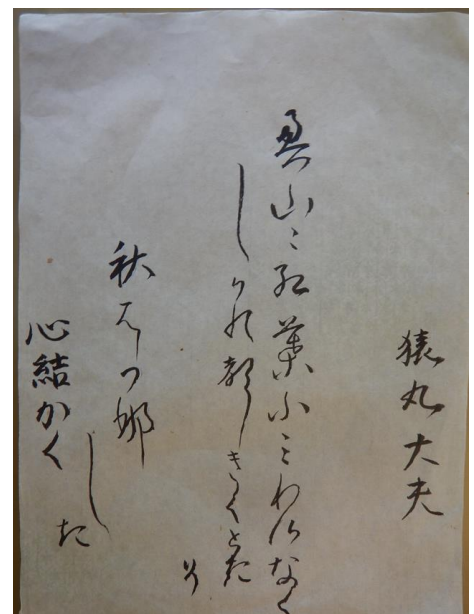 猿丸大夫
奥山に紅葉ふミわけなく
しかの聲きくとき
そ
秋はか那
しき
心結かく